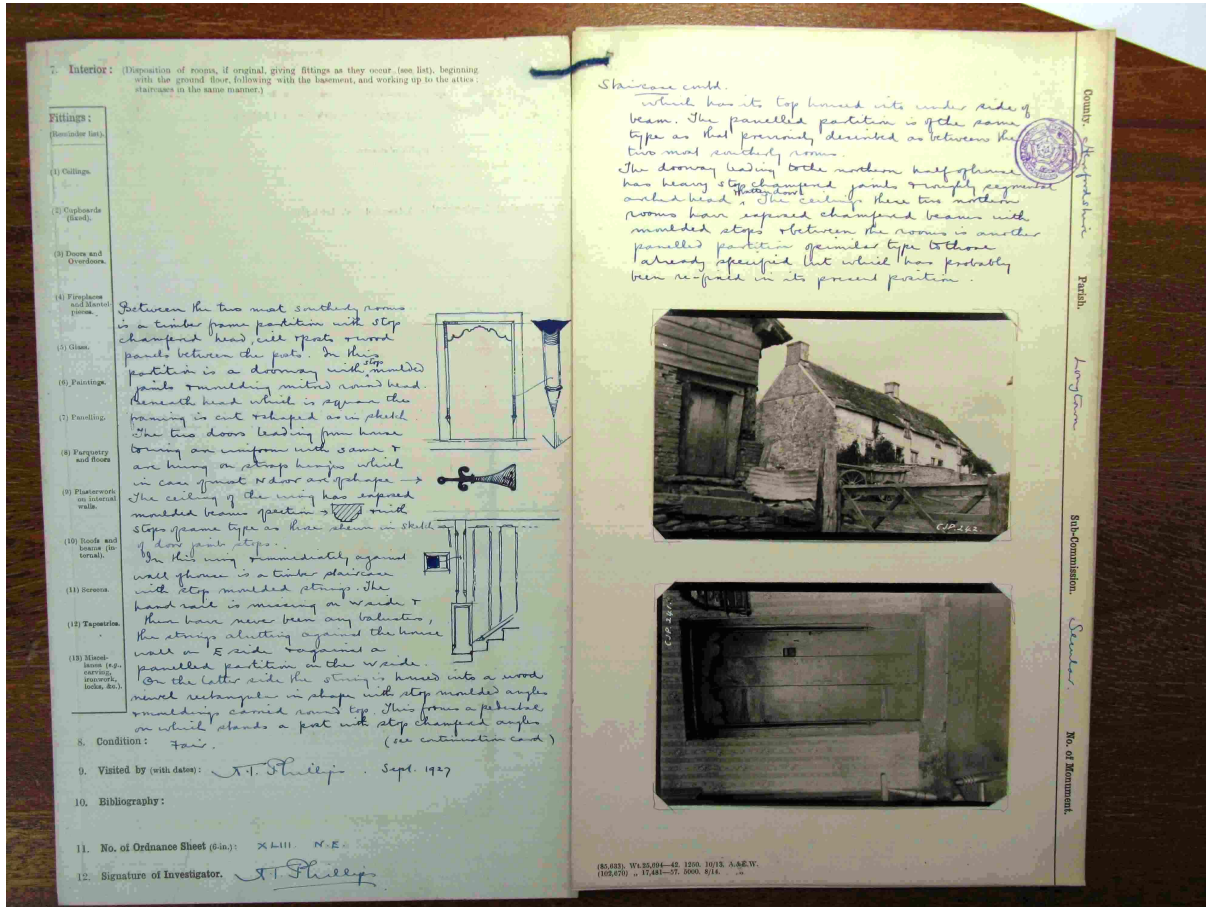 7. Interior: (Disposition of rooms, if original, giving fittings as they occur (see list), beginning
with the ground floor, following with the basement, and working up to the attics:
staircases in the same manner.)
Fittings:
(Reminder list).
(1) Ceilings.
(2) Cupboards
(fixed).
(3) Doors and
Overdoors.
(4) Fireplaces
and Mantel-
pieces.
(5) Glass.
(6) Paintings.
(7) Panelling.
(8) Parquetry
and floors
(9) Plasterwork
on internal
walls.
(10) Roofs and
beams (in-
ternal).
(11) Screens.
(12) Tapestries.
(13) Miscel-
lanea (e.g.,
carving,
ironwork,
locks, &c.).
Between the two most southerly rooms
is a timber frame partition with stop
chamfered head, cill & posts & wood
panels between the posts. In this
partition is a doorway with stop moulded
jambs & moulding mitred round head.
Beneath head which is square the
framing is cut & shaped as in sketch
The two doors leading from house
to wing are uniform with same &
are hung on strap hinges which
in case of most N door are of shape →
The ceiling of the wing has exposed
moulded beams of section & with
stops of same type as those shewn in sketch
of door jamb stops.
In this wing & immediately against
wall of house is a timber staircase
with stop moulded strings. The
hand rail is missing on W side &
there have never been any balusters,
the strings abutting against the house
wall on E side & against a
panelled partition on the W side.
On the latter side the string is housed into a wood
newel rectangular in shape with stop moulded angles
& mouldings carried round top. This forms a pedestal
on which stands a post with stop chamfered angles
(see continuation card)
8. Condition: Fair.
9. Visited by (with dates): A.T. Phillips. Sept. 1927
10. Bibliography:
11. No. of Ordnance Sheet (6-in.): XLIII N.E.
12. Signature of Investigator. A T Phillips
Staircase contd.
which has its top housed into under side of
beam. The panelled partition is of the same
type as that previously described as between the
two most southerly rooms.
The doorway leading to the northern half of house
has heavy stop chamfered jambs & roughly segmental
arched head & batten door. The ceilings these two northern
rooms have exposed chamfered beams with
moulded stops & between the rooms is another
panelled partition of similar type to those
already specified but which has probably
been re-fixed in its present position.
CJP.242.
CJP.241.
(85,633). Wt.25,694—42. 1250. 10/13. A.&E.W.
(102,670) „ 17,481—57. 5000. 8/14. „
County. Herefordshire
Parish. Longtown
Sub-Commission. Secular.
No. of Monument.